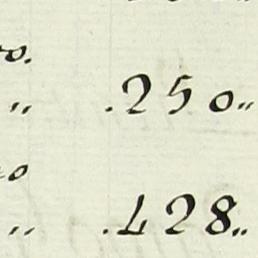 o.
„ .250„
o
„ .428„